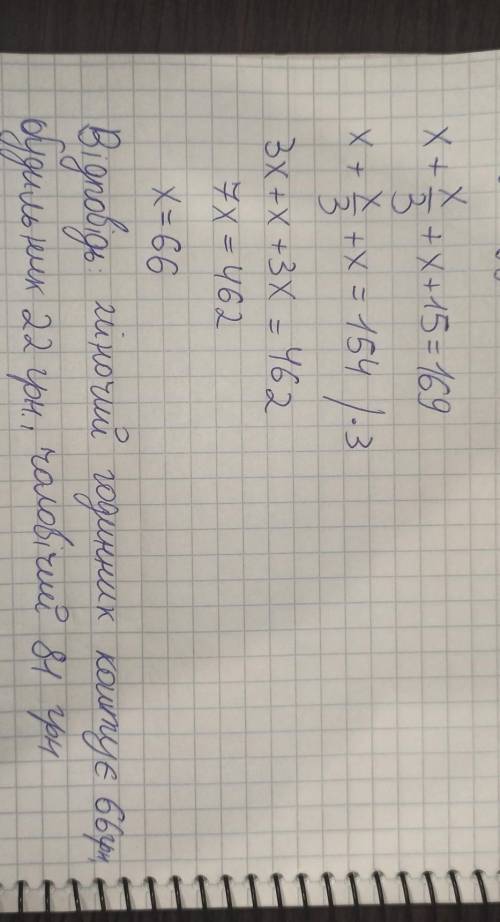 x + x/3 + x + 15 = 169
x + x/3 + x = 154 / · 3
3x + x + 3x = 462
7x = 462
x = 66
Відповідь: жіночий годинник коштує 66 грн,
будильник 22 грн., чоловічий 81 грн